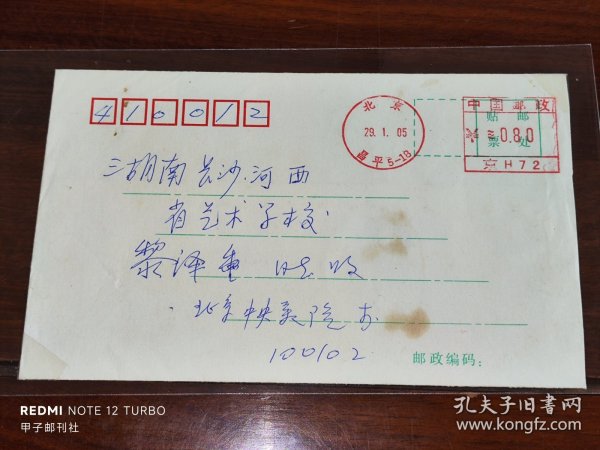 410012
北京
29.1.05
昌平5-18
中国邮政
贴邮
票处
0.80
京H72
湖南长沙河西
省艺术学校
黎泽重 収
北京中央美院
100102
邮政编码:
REDMI NOTE 12 TURBO
甲子邮刊社
孔夫子旧书网
www.kongfz.com